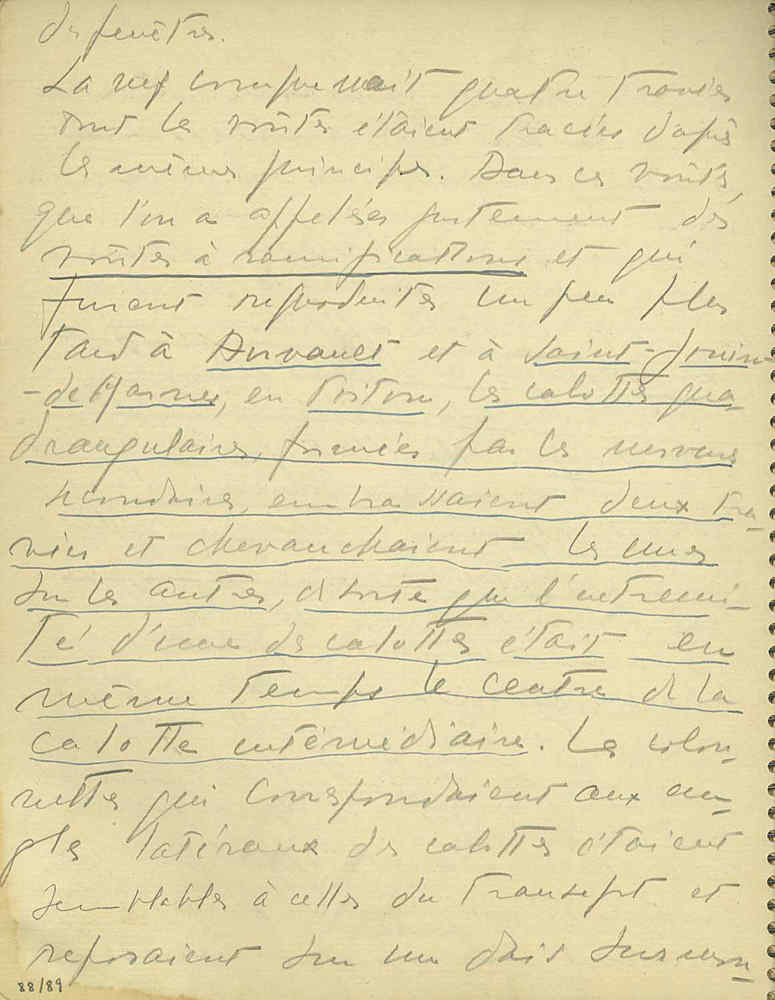 des fenêtres.
La nef comprenait quatre travées
dont les voûtes étaient tracées d'après
les mêmes principes. Dans ces voûtes,
que l'on a appelées justement des
voûtes à ramifications et qui
furent reproduites un peu plus
tard à Airvault et à Saint-Jouin-
-de Marnes, en Poitou, les calottes qua-
drangulaires, formées par les nervures
secondaires, embrassaient deux tra-
vées et chevauchaient les unes
sur les autres, de sorte que l'extremi-
té d'une des calottes était en
même temps le centre de la
calotte intérmédiaire. Les colon-
nettes qui correspondaient aux an-
gles latéraux des calottes étaient
semblables à celles du transept et
reposaient sur un dais surmon-
88/89